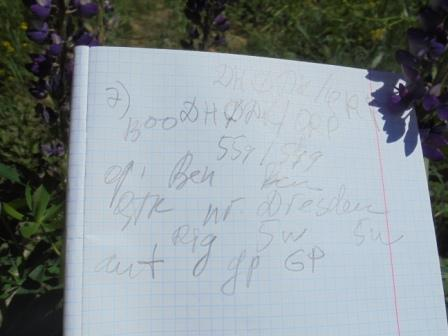 DHØDK/QR
2)
BOODHØDK/QRP
559/579
op: Ben Ben
QTH nr. Dresden
Rig 5w 5w
ant gp GP